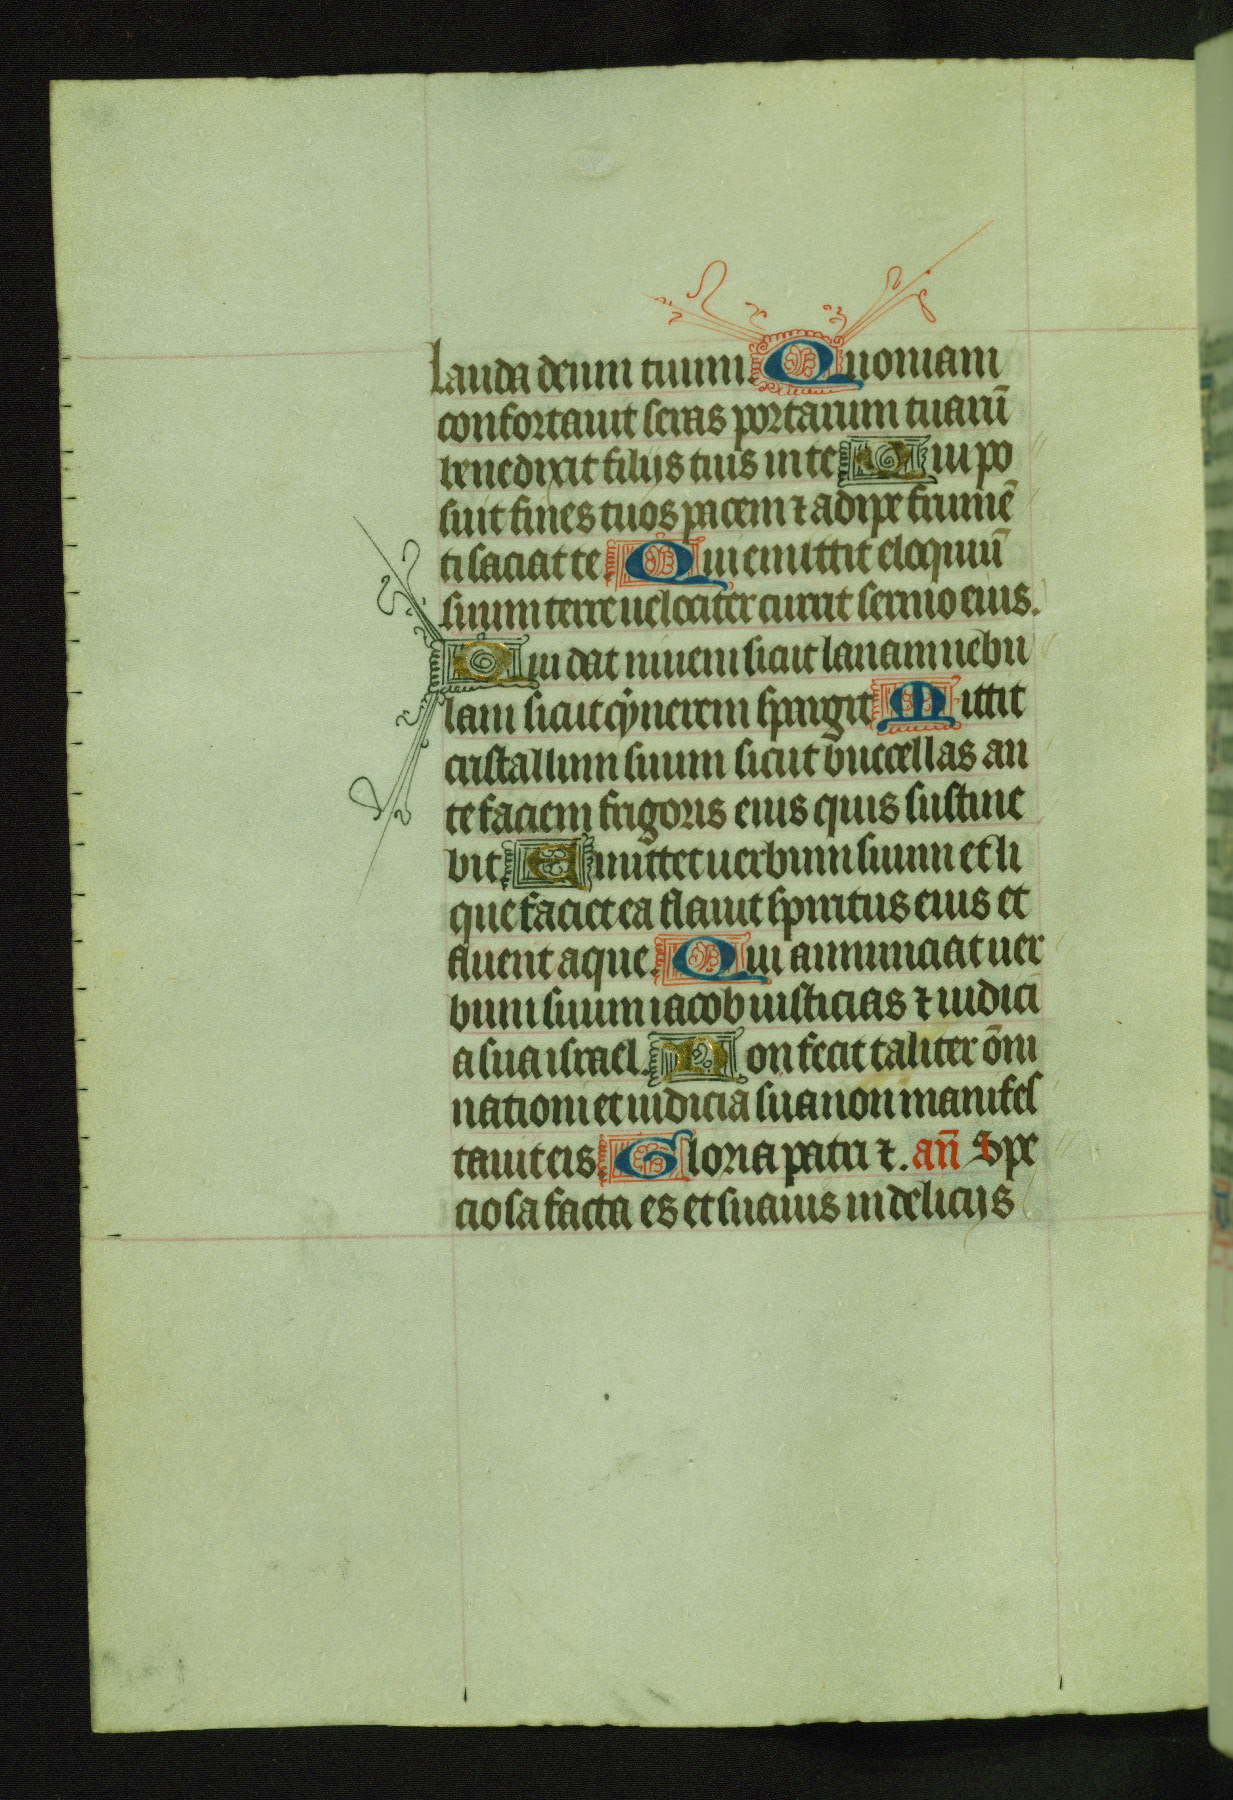 lauda deum tuum. Quoniam
confortauit seras portarum tuarū
benedixit filijs tuis in te Qui po
suit fines tuos pacem ⁊ adipe frumē
ti saciat te Qui emittit eloquiū
suum terre uelociter currit sermo eius.
Qui dat niuem sicut lanam nebu
lam sicut cynerem spargit Mittit
cristallum suum sicut buccellas an
te faciem frigoris eius quis sustine
bit Emittet uerbum suum et li
quefaciet ea flauit spiritus eius et
fluent aque. Qui annunciat uer
bum suum iacob iusticias ⁊ iudici
a sua israel. Non fecit taliter om̄i
nationi et iudicia sua non manifes
tauit eis Gloria patri ⁊. an̄ Spe
ciosa facta es et suauis in delicijs